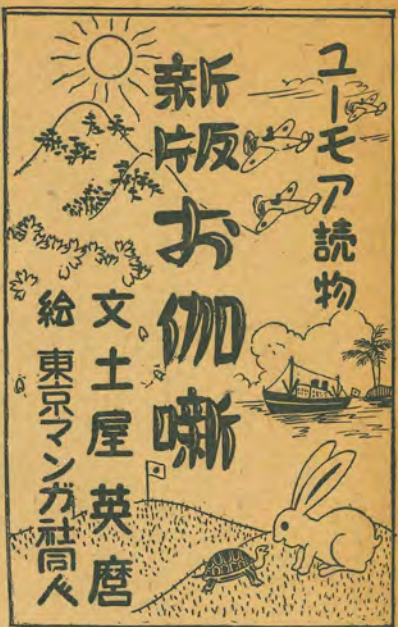 ユーモア読物
新版お伽噺
文 土屋英麿
絵 東京マンガ社同人